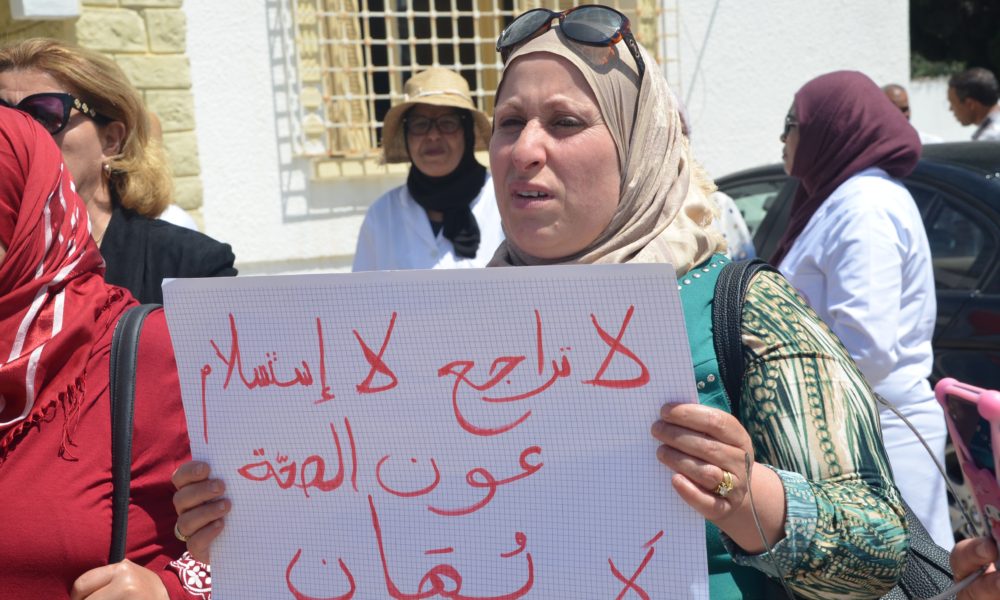 لا تراجع لا إستسلام
عون الصحّة
لا يُهان